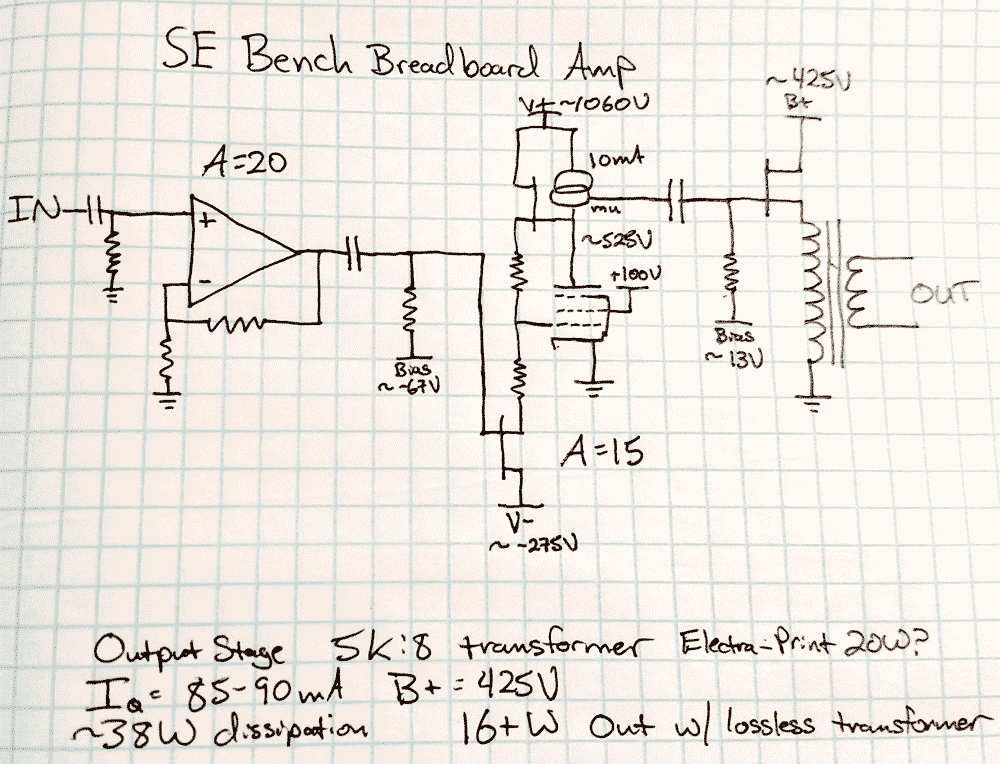 SE Bench Breadboard Amp
V+ ~1060V
~425V
B+
A=20
10mA
IN
+
mu
~525V
-
+100V
OUT
Bias
~ -67V
Bias
~ 13V
A=15
V-
~ -275V
Output Stage 5K:8 transformer Electra-Print 20W?
IQ = 85-90mA B+ = 425V
~38W dissipation 16+W Out w/ lossless transformer